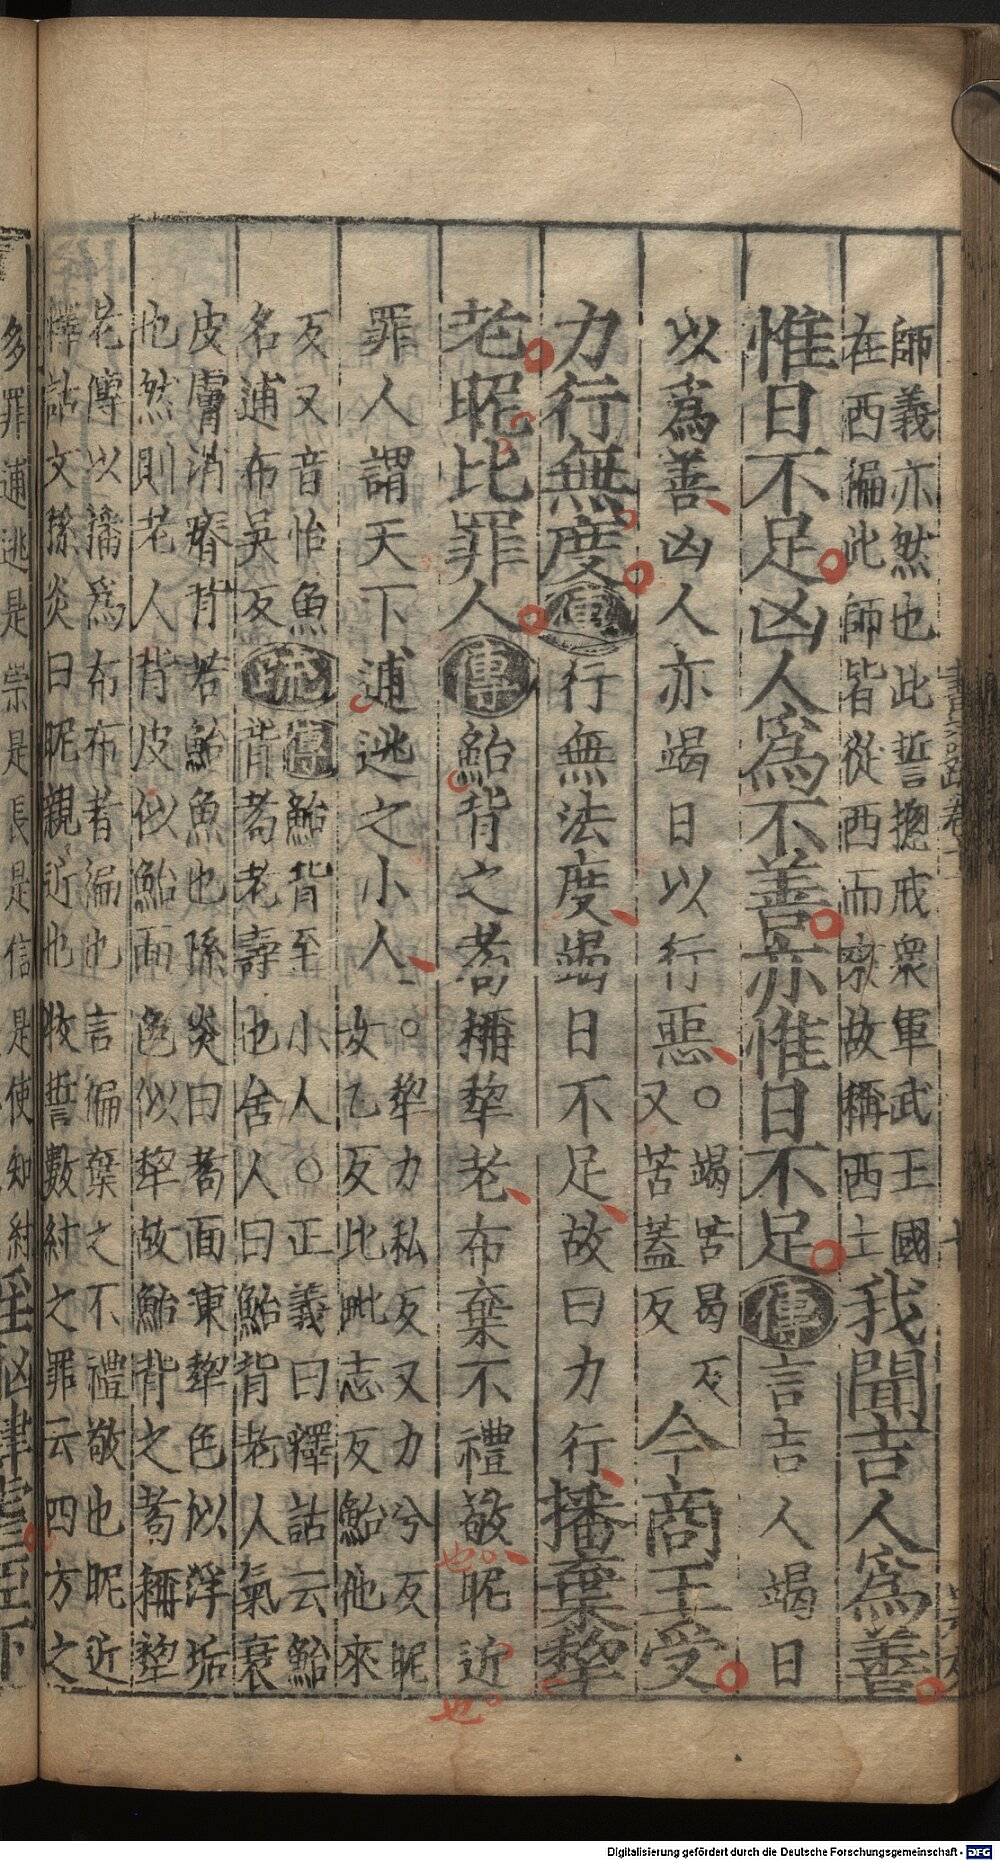 師義亦然也此誓摠戒衆軍武王國
在西偏此師皆從西而來故稱西土
我聞吉人爲善
惟日不足凶人爲不善亦惟日不足傳言吉人竭日
以爲善凶人亦竭日以行惡○竭苦曷反
又苦蓋反
今商王受
力行無度傳行無法度竭日不足故曰力行播棄犂
老昵比罪人傳鮐背之耇稱犂老布棄不禮敬昵近
也
也
罪人謂天下逋逃之小人○犂力私反又力兮反昵
女乙反比毗志反鮐他來
反又音怡魚傳鮐背至小人○正義曰釋詁云鮐
名逋布吳反疏背耇老壽也舍人曰鮐背老人氣衰
皮膚消瘠背若鮐魚也孫炎曰耇面凍犂色似浮垢
也然則老人背皮似鮐面色似犂故鮐背之耇稱犂
老傳以播爲布布者徧也言徧棄之不禮敬也昵近
釋詁文孫炎曰昵親近也牧誓數紂之罪云四方之
多罪逋逃是崇是長是信是使知紂
Digitalisierung gefördert durch die Deutsche Forschungsgemeinschaft - DFG